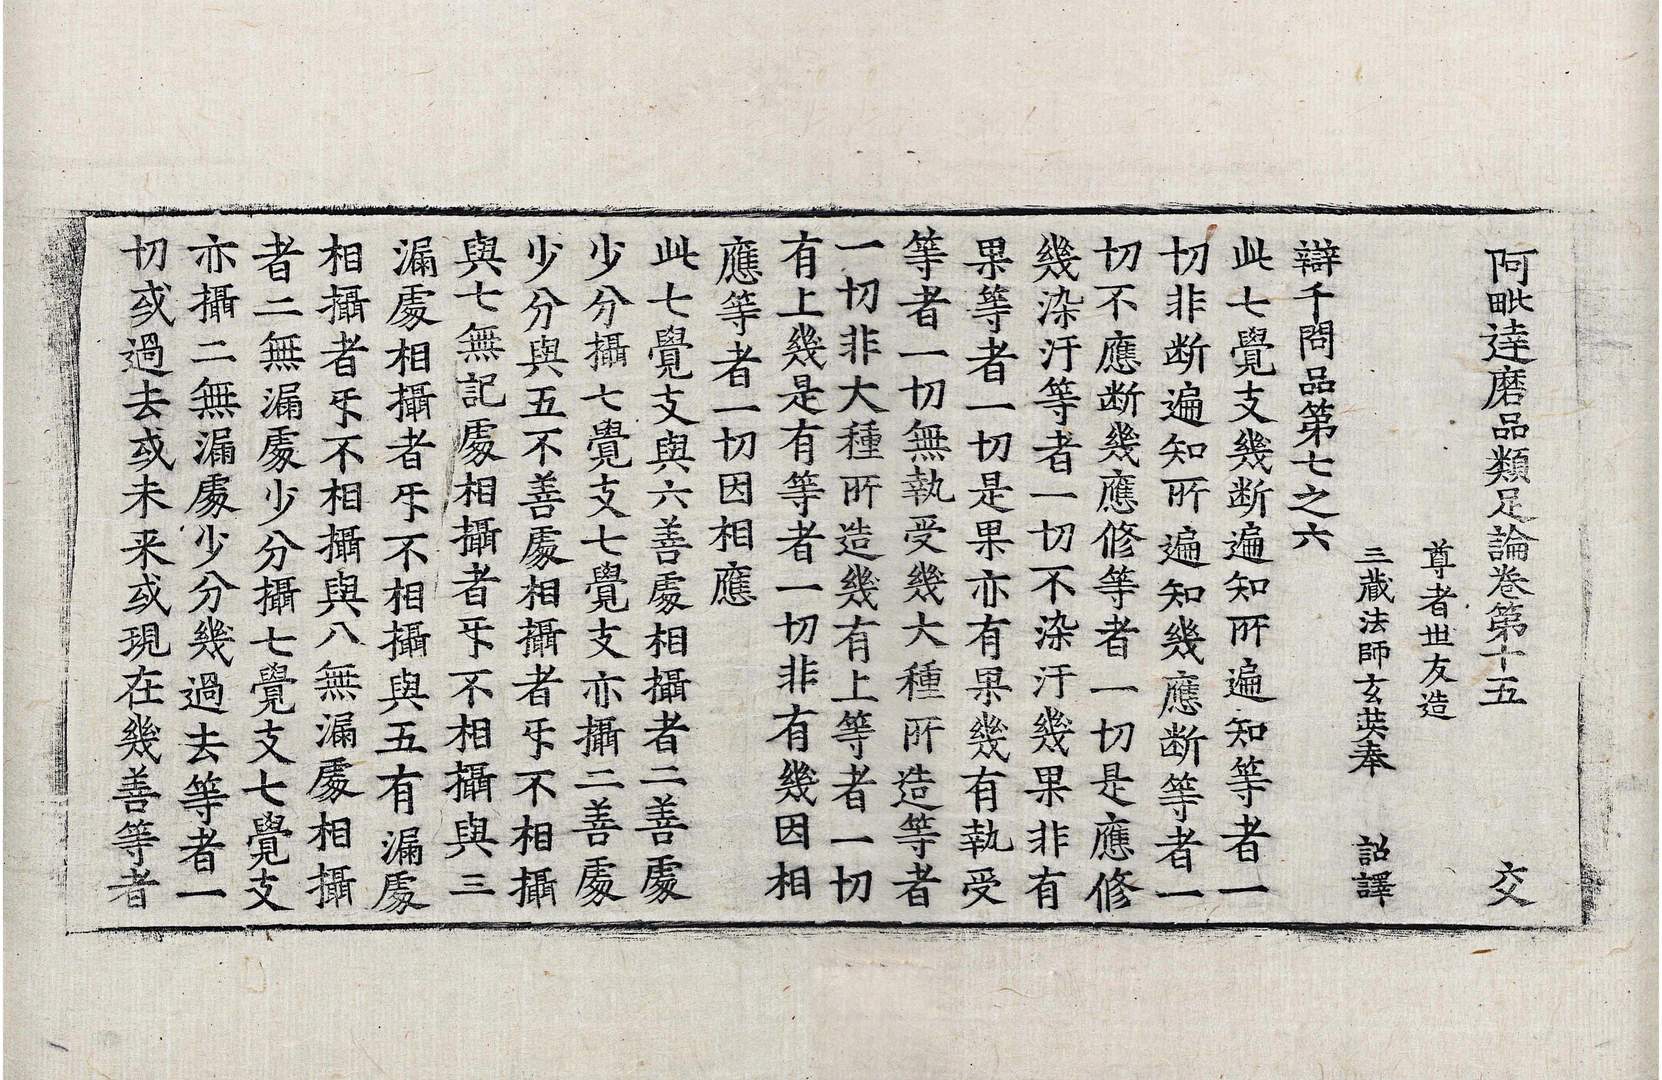 阿毗達磨品類足論卷第十五 交
尊者世友造
三藏法師玄奘奉 詔譯
辯千問品第七之六
此七覺支幾断遍知所遍知等者一
切非断遍知所遍知幾應断等者一
切不應断幾應修等者一切是應修
幾染汙等者一切不染汙幾果非有
果等者一切是果亦有果幾有執受
等者一切無執受幾大種所造等者
一切非大種所造幾有上等者一切
有上幾是有等者一切非有幾因相
應等者一切因相應
此七覺支與六善處相攝者二善處
少分攝七覺支七覺支亦攝二善處
少分與五不善處相攝者互不相攝
與七無記處相攝者互不相攝與三
漏處相攝者互不相攝與五有漏處
相攝者互不相攝與八無漏處相攝
者二無漏處少分攝七覺支七覺支
亦攝二無漏處少分幾過去等者一
切或過去或未来或現在幾善等者